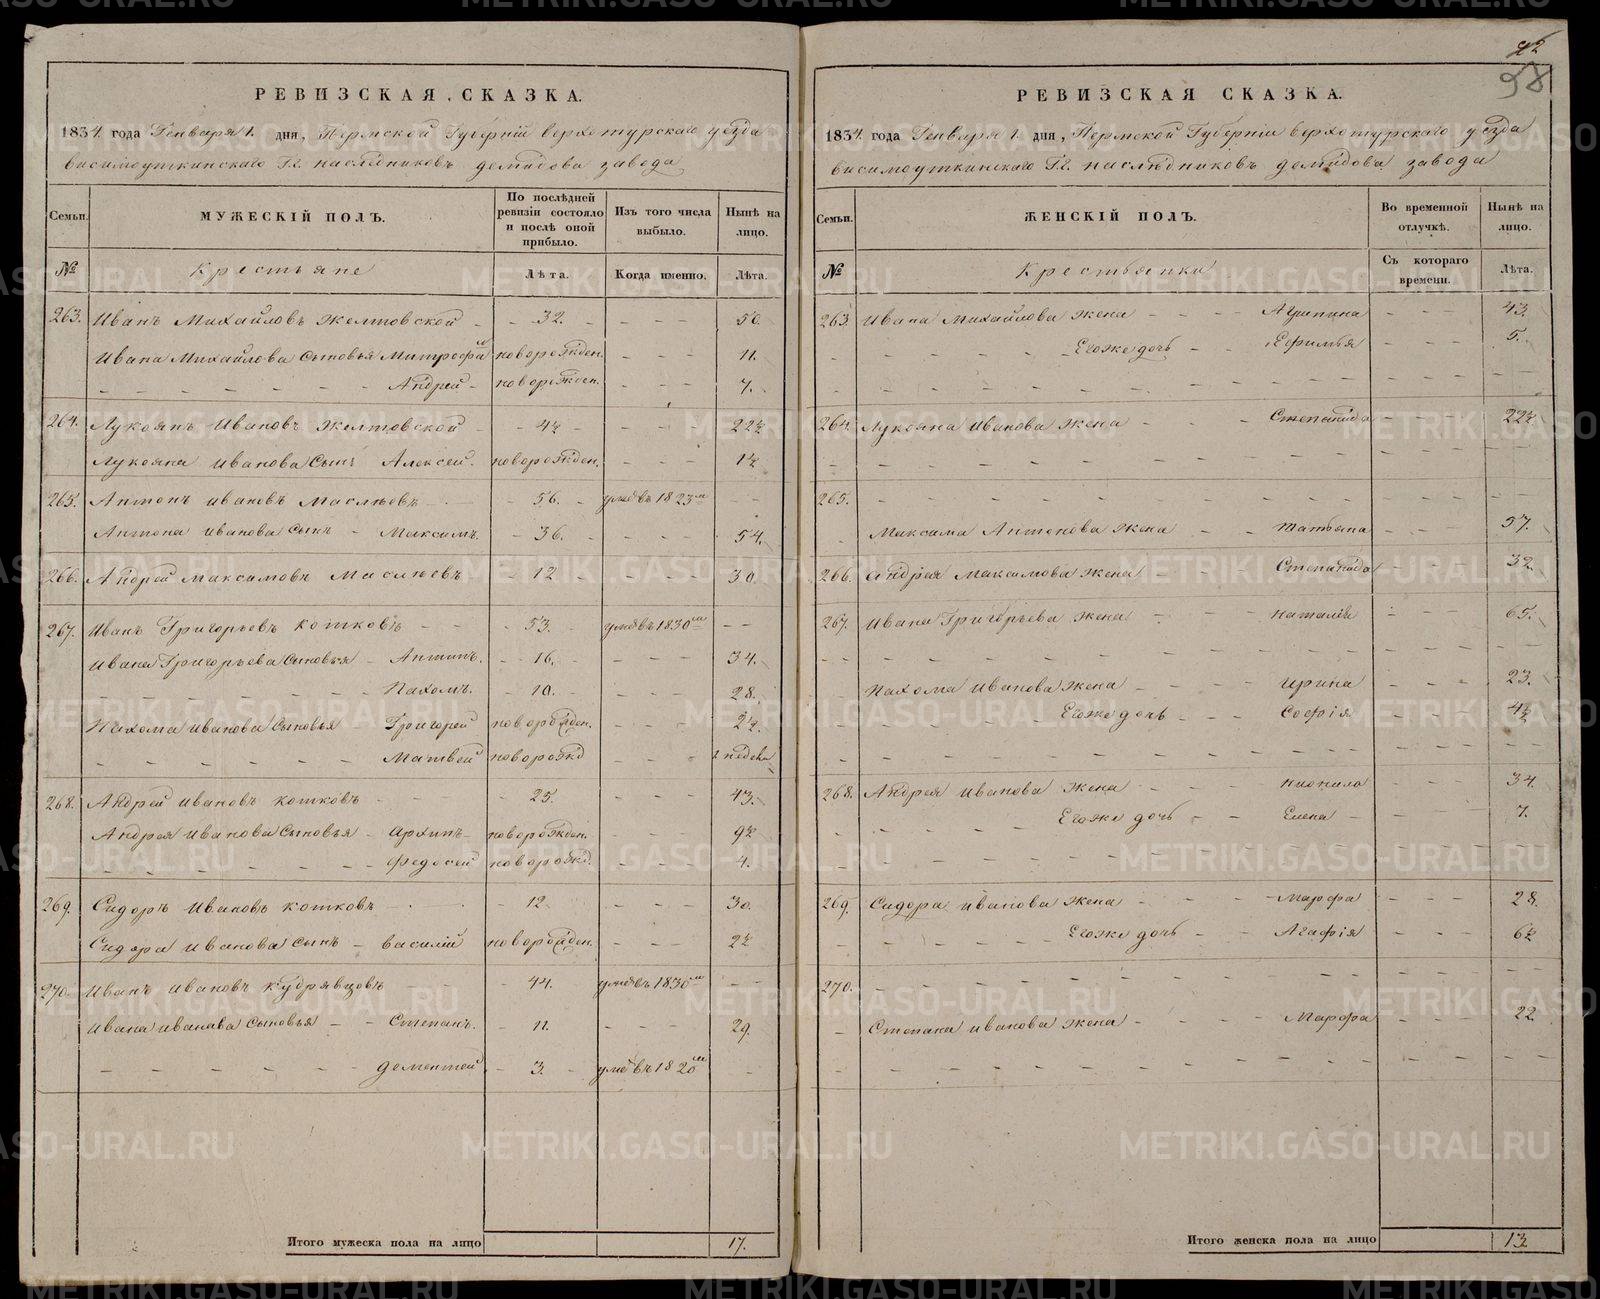 42
58
РЕВИЗСКАЯ СКАЗКА.
1834. года Генваря 1. дня, Пермской Губерніи верхотурскаго уезда
висимоуткинскаго Г.г. наследниковъ демидова завода
Семьи. МУЖЕСКІЙ ПОЛЪ. По послѣдней ревизіи состояло и послѣ оной прибыло. Изъ того числа выбыло. Нынѣ на лицо.
№ Крестьяне Лѣта. Когда именно. Лѣта.
263. Иванъ Михайловъ Желтовской - - 32. - - - - 50.
Ивана Михайлова Сыновья Митрофанъ новорожден. - - - 11.
- - - - - - - - Андрей - новорожден. - - - 7.
264. Лукоянъ Ивановъ Желтовской - - 4½ - - - - 22½
Лукояна Иванова Сынъ Алексей. новорожден. - - - 1½
265. Антонъ ивановъ Маслѣевъ - 56. умѣ въ 1823м - -
Антона иванова Сынъ - Максимъ. - 36. - - - - 54.
266. Андрей Максимовъ Маслѣевъ - 12 - - - - 30.
267. Иванъ Григорьевъ кошковъ - - - - 53. умѣ въ 1830м - -
Ивана Григорьева Сыновья - Антипъ. - 16. - - - - 34.
- - - - - - - - Пахомъ. - 10. - - - - 28.
Пахома Иванова Сыновья - Григорей новорожден. - - - 2½.
- - - - - - Матвей новорожд - - - 2 недели
268. Андрей ивановъ кошковъ - - - 25. - - - - 43.
Андрея Иванова Сыновья - Архипъ - новорожден. - - - 9½
- - - - - - - Федосей новорожд. - - - 4.
269. Сидоръ Ивановъ кошковъ - - - 12. - - - - 30.
Сидора Иванова Сынъ - василій новорожден. - - - 2½
270. Иванъ ивановъ кудрявцовъ - - 44. умѣ въ 1830м - -
Ивана иванова Сыновья - - Степанъ. - 11. - - - - 29.
- - - - - - дементей - 3. - умѣ въ 1820м -
Итого мужеска пола на лицо 17.
РЕВИЗСКАЯ СКАЗКА.
1834. года Генваря 1. дня, Пермской Губерніи верхотурскаго уезда
висимоуткинскаго Г.г. наслѣдниковъ демидова завода
Семьи. ЖЕНСКІЙ ПОЛЪ. Во временной отлучкѣ. Нынѣ на лицо.
№ Крестьянки Съ котораго времени. Лѣта.
263. Ивана Михайлова жена - - - - Агрипина - - - 43.
- - - - - - Егоже дочь - - Ефимья - - - 5.
264. Лукояна Иванова Жена - - - Степанида - - - 22½
265. - - - - - - - -
Максима Антонова жена - - Татьяна - - - 57.
266. Андрея Максимова жена - - - Степанида - - - 32.
267. Ивана Григорьева жена - - - Наталія - - - 65.
Пахома Иванова жена - - - - Ирина - - - 23.
- - - - - Егоже дочь - - - Софія - - - 4½
268. Андрея Иванова жена - - - Нионила - - - 34.
- - - - - Егоже дочь - - Елена - - - 7.
269. Сидора иванова жена - - - - Марфа - - - 28.
- - - - - Егоже дочь - - Агафія - - - 6½
270. - - - - - - - -
Степана иванова жена - - - - Марфа - - - 22.
Итого женска пола на лицо 13
METRIKI.GASO-URAL.RU